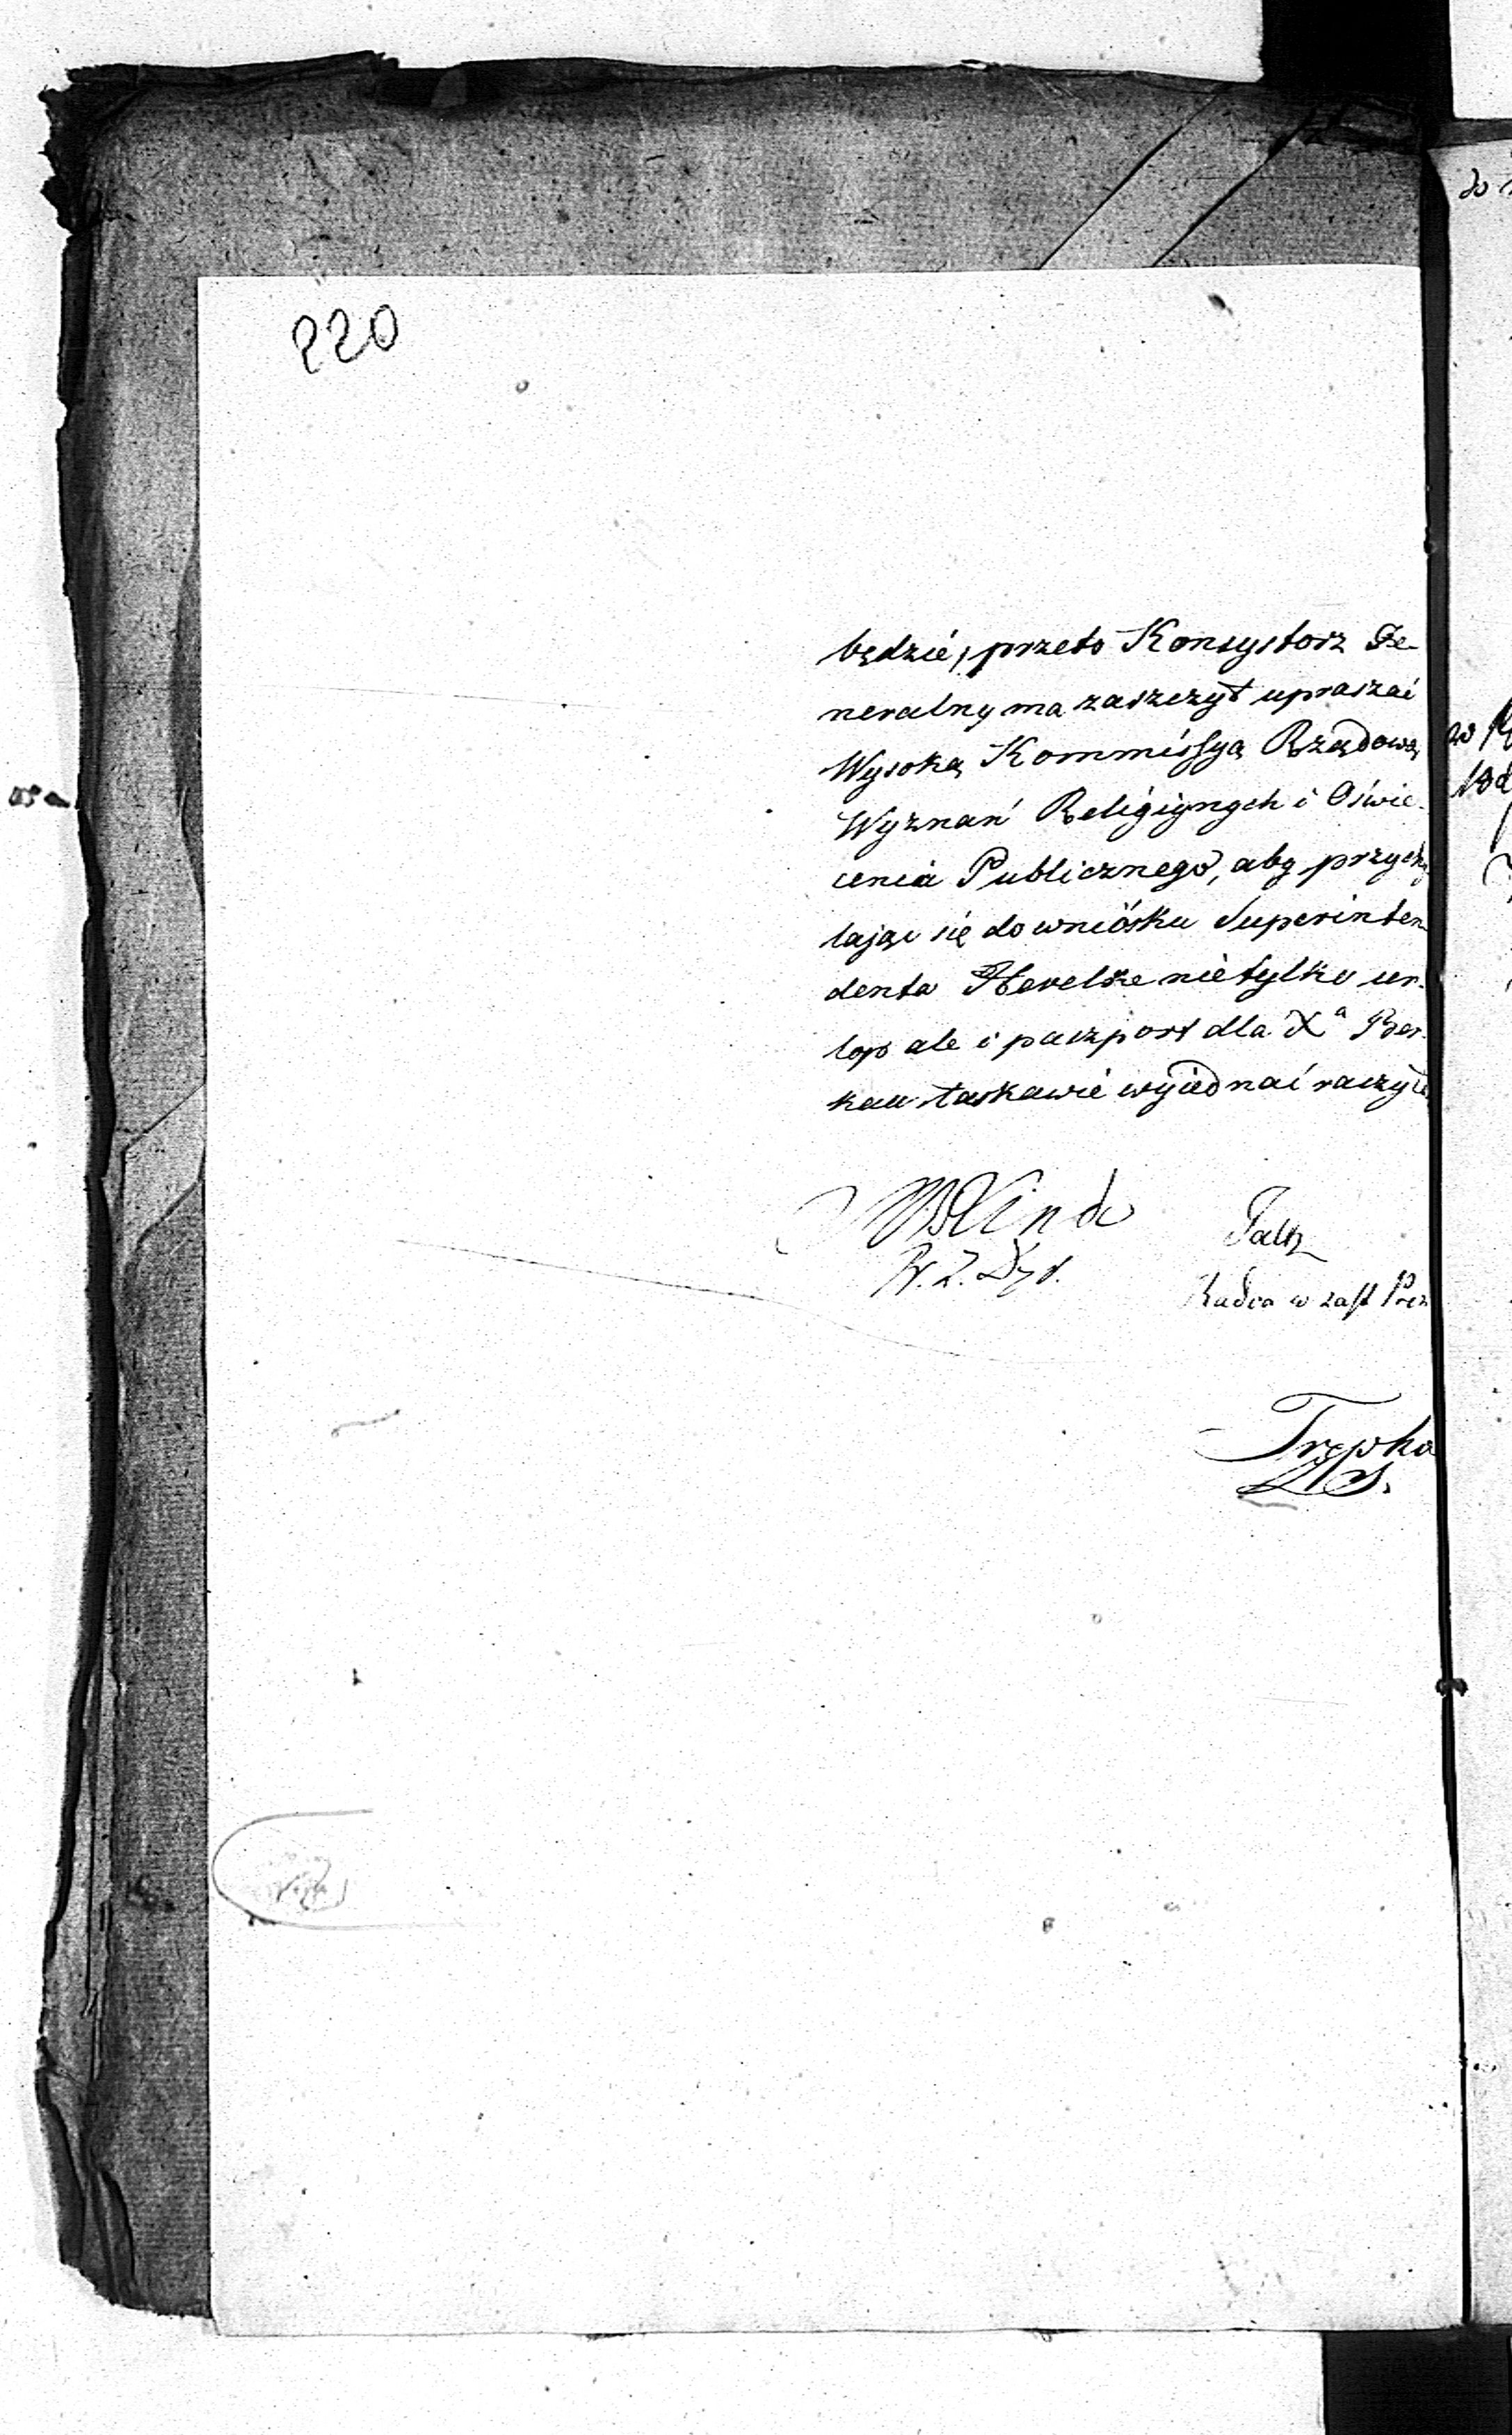 220
będzie, przeto Konsystorz Ge-
neralny ma zaszczyt upraszać
Wysoką Kommissyą Rządową
Wyznań Religiynych i Oświe-
cenia Publicznego, aby przychy
lając się do wniosku Superinten
denta Hevelke nietylko ur-
lop ale i paszport dla Xa Ber-
kau łaskawie wyiednać raczyła
Linde
Faltz
Radca w zast Prez
Trepka